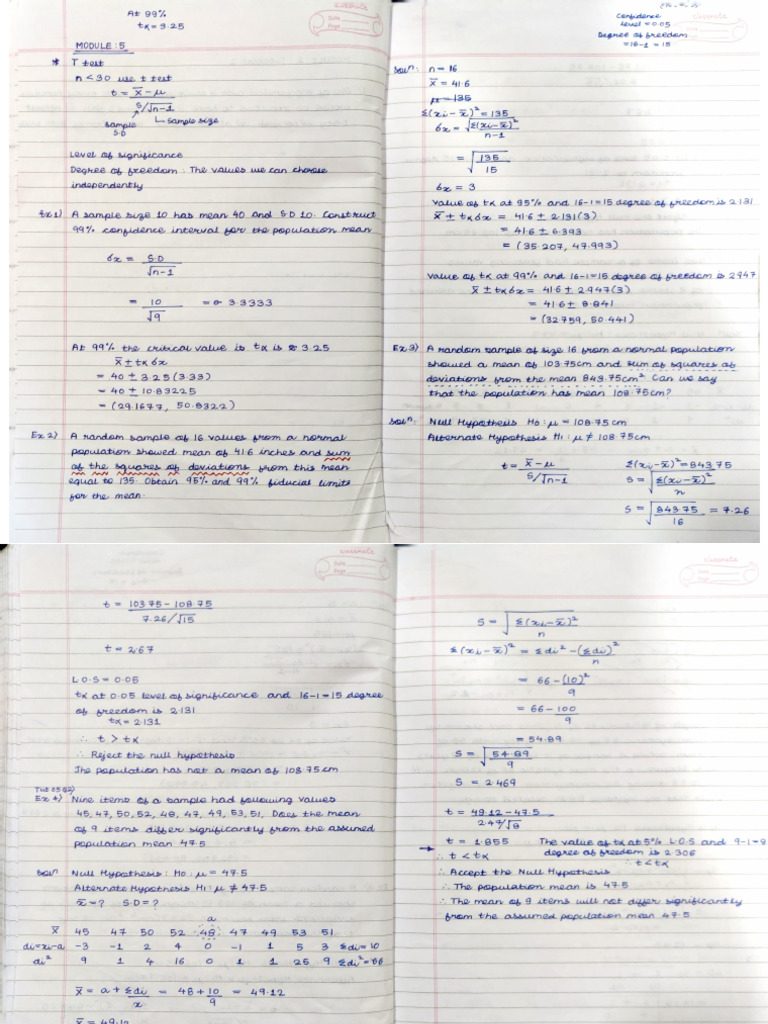 At 99%
tα = 3.25
classmate
Date
Page
MODULE: 5
* T test
n < 30 use t test
t = x̄ - μ
S/√n-1
sample S.D
sample size
Level of significance
Degree of freedom : The values we can choose
independently
Ex 1) A sample size 10 has mean 40 and S.D 10. Construct
99% confidence interval for the population mean
σx = S.D
√n-1
= 10 = 3.3333
√9
At 99% the critical value is tα is 3.25
x̄ ± tα σx
= 40 ± 3.25 (3.33)
= 40 ± 10.83225
= (29.1677, 50.8322)
Ex 2) A random sample of 16 values from a normal
population showed mean of 41.6 inches and sum
of the squares of deviations from this mean
equal to 135. Obtain 95% and 99% fiducial limits
for the mean.
Confidence
level = 0.05
Degree of freedom
= 16-1 = 15
classmate
Soln: n = 16
x̄ = 41.6
μ = 135
Σ(xi - x̄)² = 135
σx = √Σ(xi - x̄)²
n-1
= √135
15
σx = 3
value of tα at 95% and 16-1=15 degree of freedom is 2.131
x̄ ± tα σx = 41.6 ± 2.131(3)
= 41.6 ± 6.393
= (35.207, 47.993)
value of tα at 99% and 16-1=15 degree of freedom is 2.947
x̄ ± tα σx = 41.6 ± 2.947(3)
= 41.6 ± 8.841
= (32.759, 50.441)
Ex.3) A random sample of size 16 from a normal population
showed a mean of 103.75cm and sum of squares of
deviations from the mean 843.75cm². Can we say
that the population has mean 108.75cm?
Soln: Null Hypothesis H0 : μ = 108.75cm
Alternate Hypothesis H1 : μ ≠ 108.75cm
t = x̄ - μ
S/√n-1
Σ(xi - x̄)² = 843.75
S = √Σ(xi - x̄)²
n
S = √843.75 = 7.26
16
classmate
Date
Page
t = 103.75 - 108.75
7.26/√15
t = 2.67
L.O.S = 0.05
tα at 0.05 level of significance and 16-1=15 degree
of freedom is 2.131
tα = 2.131
∴ t > tα
∴ Reject the null hypothesis
The population has not a mean of 108.75cm
Ex 4) Nine items of a sample had following values
45, 47, 50, 52, 48, 47, 49, 53, 51, Does the mean
of 9 items differ significantly from the assumed
population mean 47.5
Soln Null Hypothesis : H0 : μ = 47.5
Alternate Hypothesis H1 : μ ≠ 47.5
x̄ = ? S.D = ?
a
X 45 47 50 52 48 47 49 53 51
di = xi-a -3 -1 2 4 0 -1 1 5 3 Σdi = 10
di² 9 1 4 16 0 1 1 25 9 Σdi² = 66
x̄ = a + Σdi = 48 + 10 = 49.12
x 9
x̄ = 49.12
classmate
Date
Page
S = √Σ(xi - x̄)²
n
Σ(xi - x̄)² = Σdi² - (Σdi)²
n
= 66 - (10)²
9
= 66 - 100
9
= 54.89
S = √54.89
9
S = 2.469
t = 49.12 - 47.5
2.47/√8
t = 1.855 The value of tα at 5% L.O.S and 9-1=8
degree of freedom is 2.306
∴ t < tα ∴ t < tα
∴ Accept the Null Hypothesis
∴ The population mean is 47.5
∴ The mean of 9 items will not differ significantly
from the assumed population mean 47.5